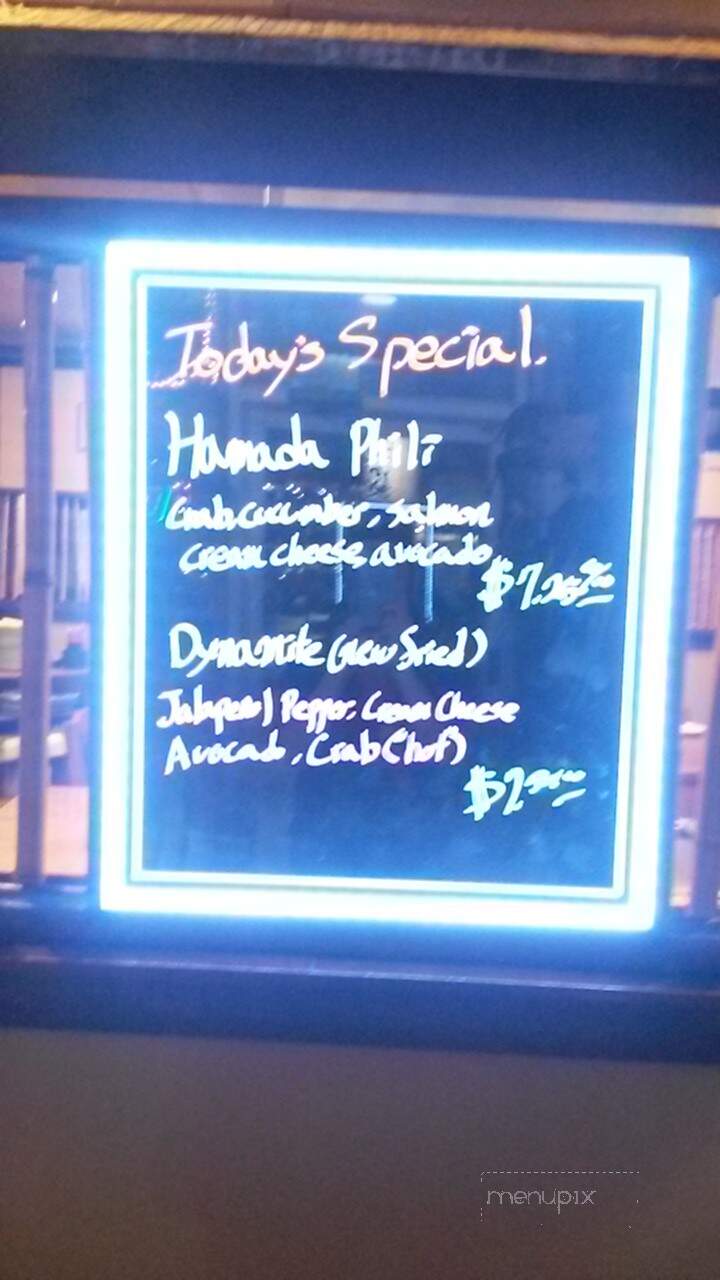 Today's Special.
Hamada Phili
Crab, cucumber, salmon
cream cheese, avocado
Dynamite (new fried)
Pepper, Cream Cheese
Avocado, Crab (hot)
menupix